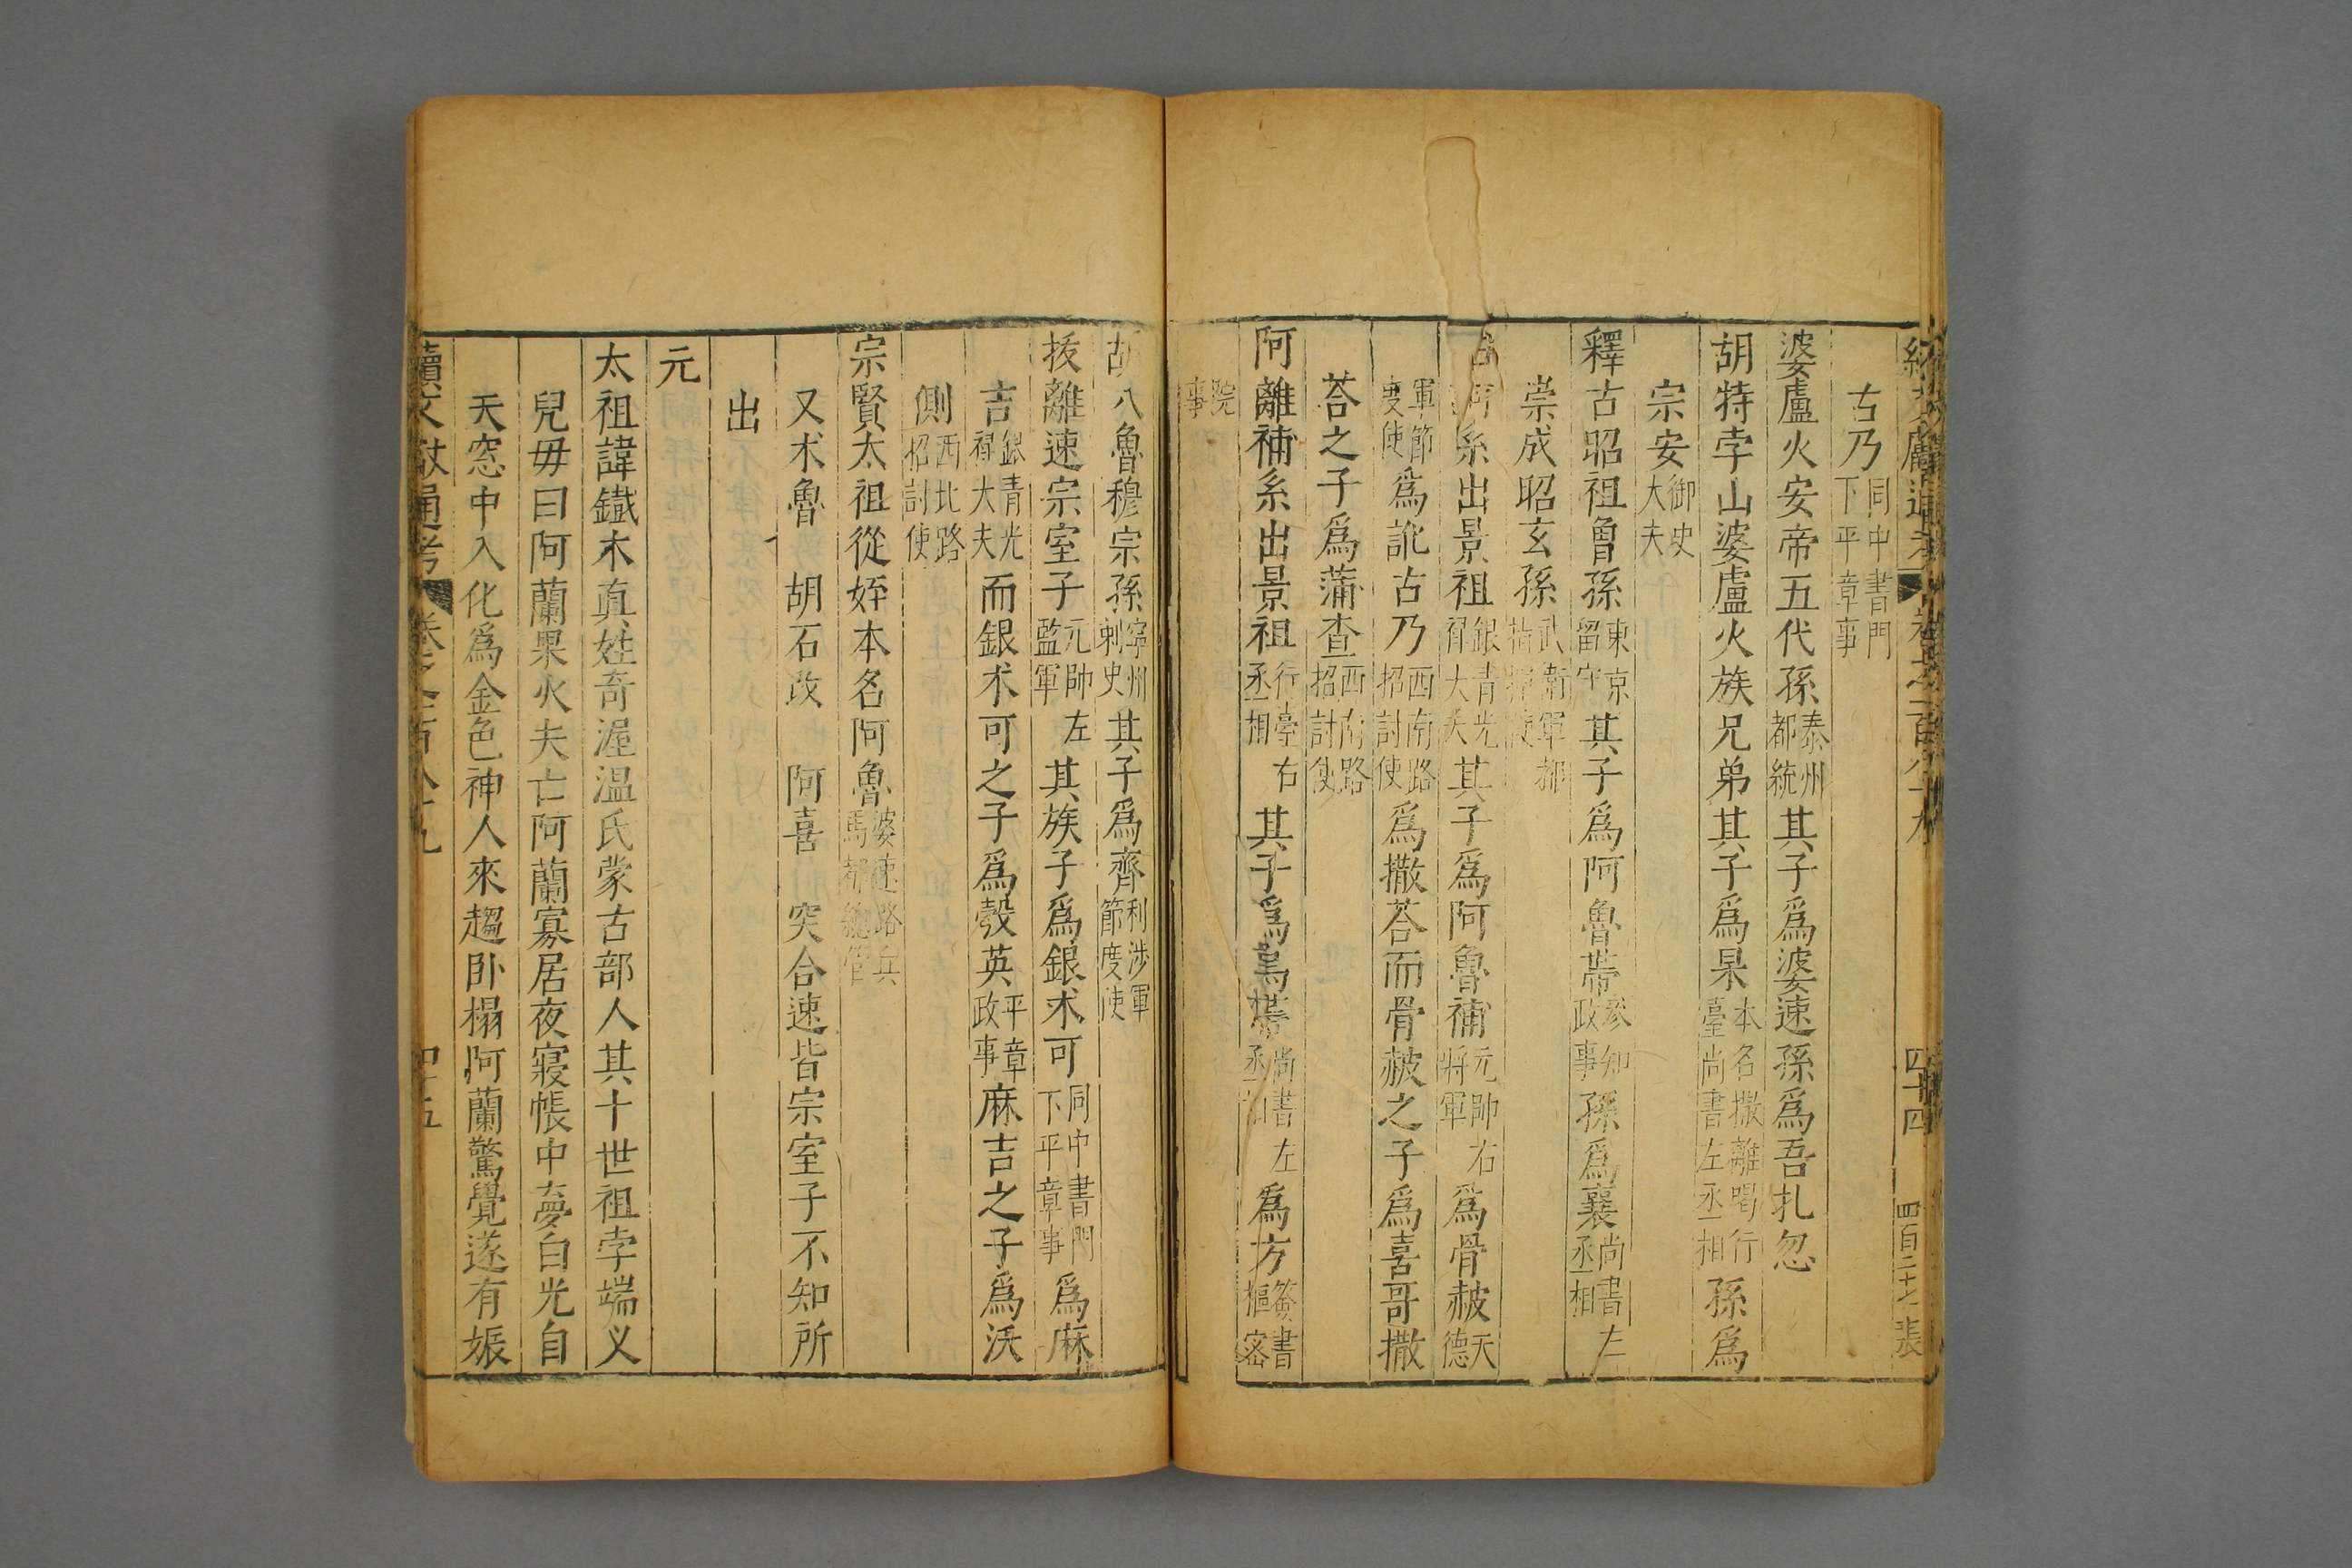 古乃同中書門下平章事
婆盧火安帝五代孫泰州都統其子爲婆速孫爲吾扎忽
胡特孛山婆盧火族兄弟其子爲杲本名撒離喝行臺尚書左丞相孫爲
宗安御史大夫
釋古昭祖曾孫東京留守其子爲阿魯帶參知政事孫爲襄尚書左丞相
崇成昭玄孫武衛軍都指揮使
系出景祖銀青光祿大夫其子爲阿魯補元帥右將軍爲骨赦天德
軍節度使爲訛古乃西南路招討使爲撒荅而骨赦之子爲喜哥撒
荅之子爲蒲查西南路招討使
阿離補系出景祖行臺右丞相其子爲尚書左丞相爲方簽書樞密
院事
八魯穆宗孫寧州刺史其子爲齊利涉軍節度使
拔離速宗室子元帥左監軍其族子爲銀朮可同中書門下平章事爲麻
吉銀青光祿大夫而銀朮可之子爲彀英平章政事麻吉之子爲沃
側西北路招討使
宗賢太祖從姪本名阿魯婆速路兵馬都總管
又朮魯 胡石改 阿喜 突合速皆宗室子不知所
出
元
太祖諱鐵木真姓奇渥溫氏蒙古部人其十世祖孛端义
兒毋曰阿蘭果火夫亡阿蘭寡居夜寢帳中夢白光自
天窓中入化爲金色神人來趨卧榻阿蘭驚覺遂有娠
續文獻通考 卷之二百八九
四十五
四十四
四百二十七張